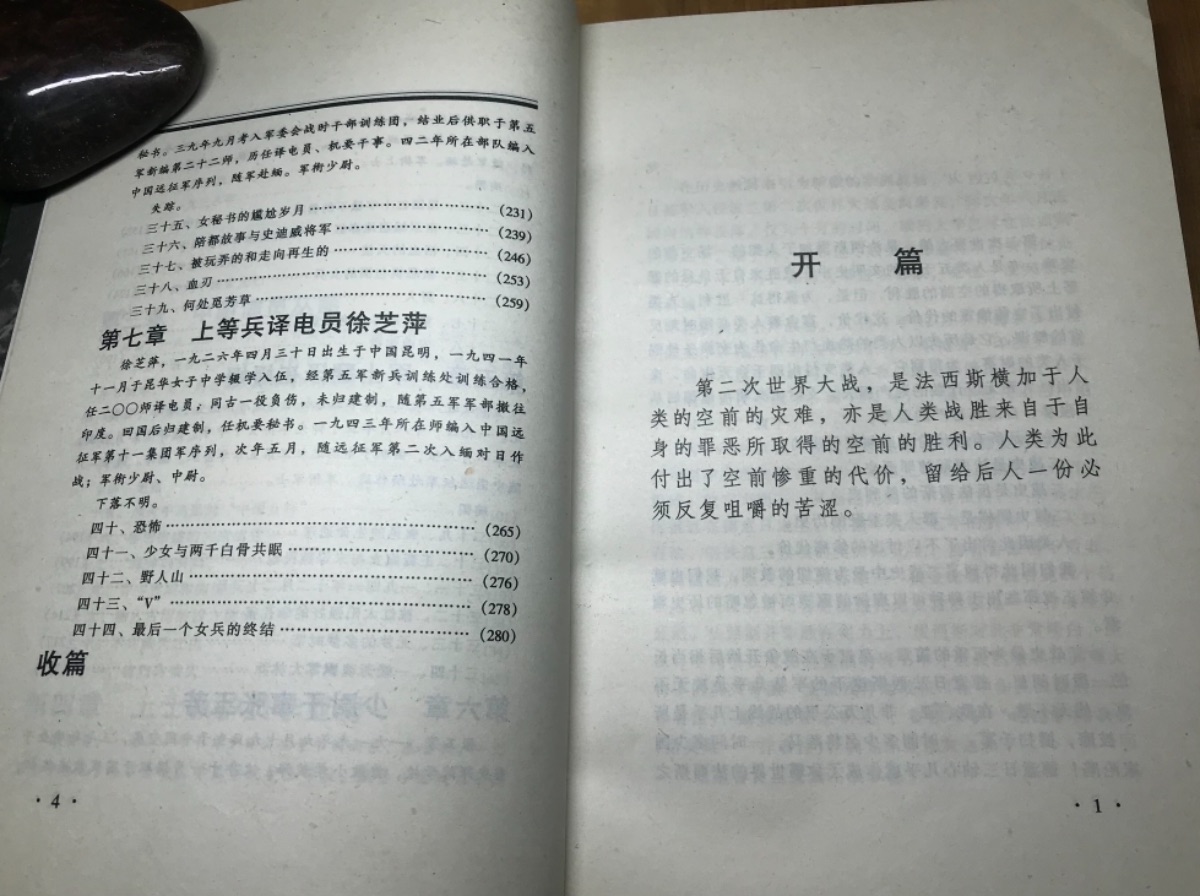 秘书。三九年九月考入军委会战时干部训练团，结业后供职于第五
军新编第二十二师，历任译电员、机要干事。四二年所在部队编入
中国远征军序列，随军赴缅。军衔少尉。
失踪。
三十五、女秘书的尴尬岁月……………………………(231)
三十六、陪都故事与史迪威将军………………………(239)
三十七、被玩弄的和走向再生的………………………(246)
三十八、血刃……………………………………………(253)
三十九、何处觅芳草……………………………………(259)
第七章 上等兵译电员徐芝萍
徐芝萍，一九二六年四月三十日出生于中国昆明，一九四一年
十一月于昆华女子中学辍学入伍，经第五军新兵训练处训练合格，
任二〇〇师译电员；同古一役负伤，未归建制，随第五军军部撤往
印度。回国后归建制，任机要秘书。一九四三年所在师编入中国远
征军第十一集团军序列，次年五月，随远征军第二次入缅对日作
战；军衔少尉、中尉。
下落不明。
四十、恐怖………………………………………………(265)
四十一、少女与两千白骨共眠…………………………(270)
四十二、野人山…………………………………………(276)
四十三、“V”……………………………………………(278)
四十四、最后一个女兵的终结…………………………(280)
收篇
·4·
开 篇
第二次世界大战，是法西斯横加于人
类的空前的灾难，亦是人类战胜来自于自
身的罪恶所取得的空前的胜利。人类为此
付出了空前惨重的代价，留给后人一份必
须反复咀嚼的苦涩。
·1·